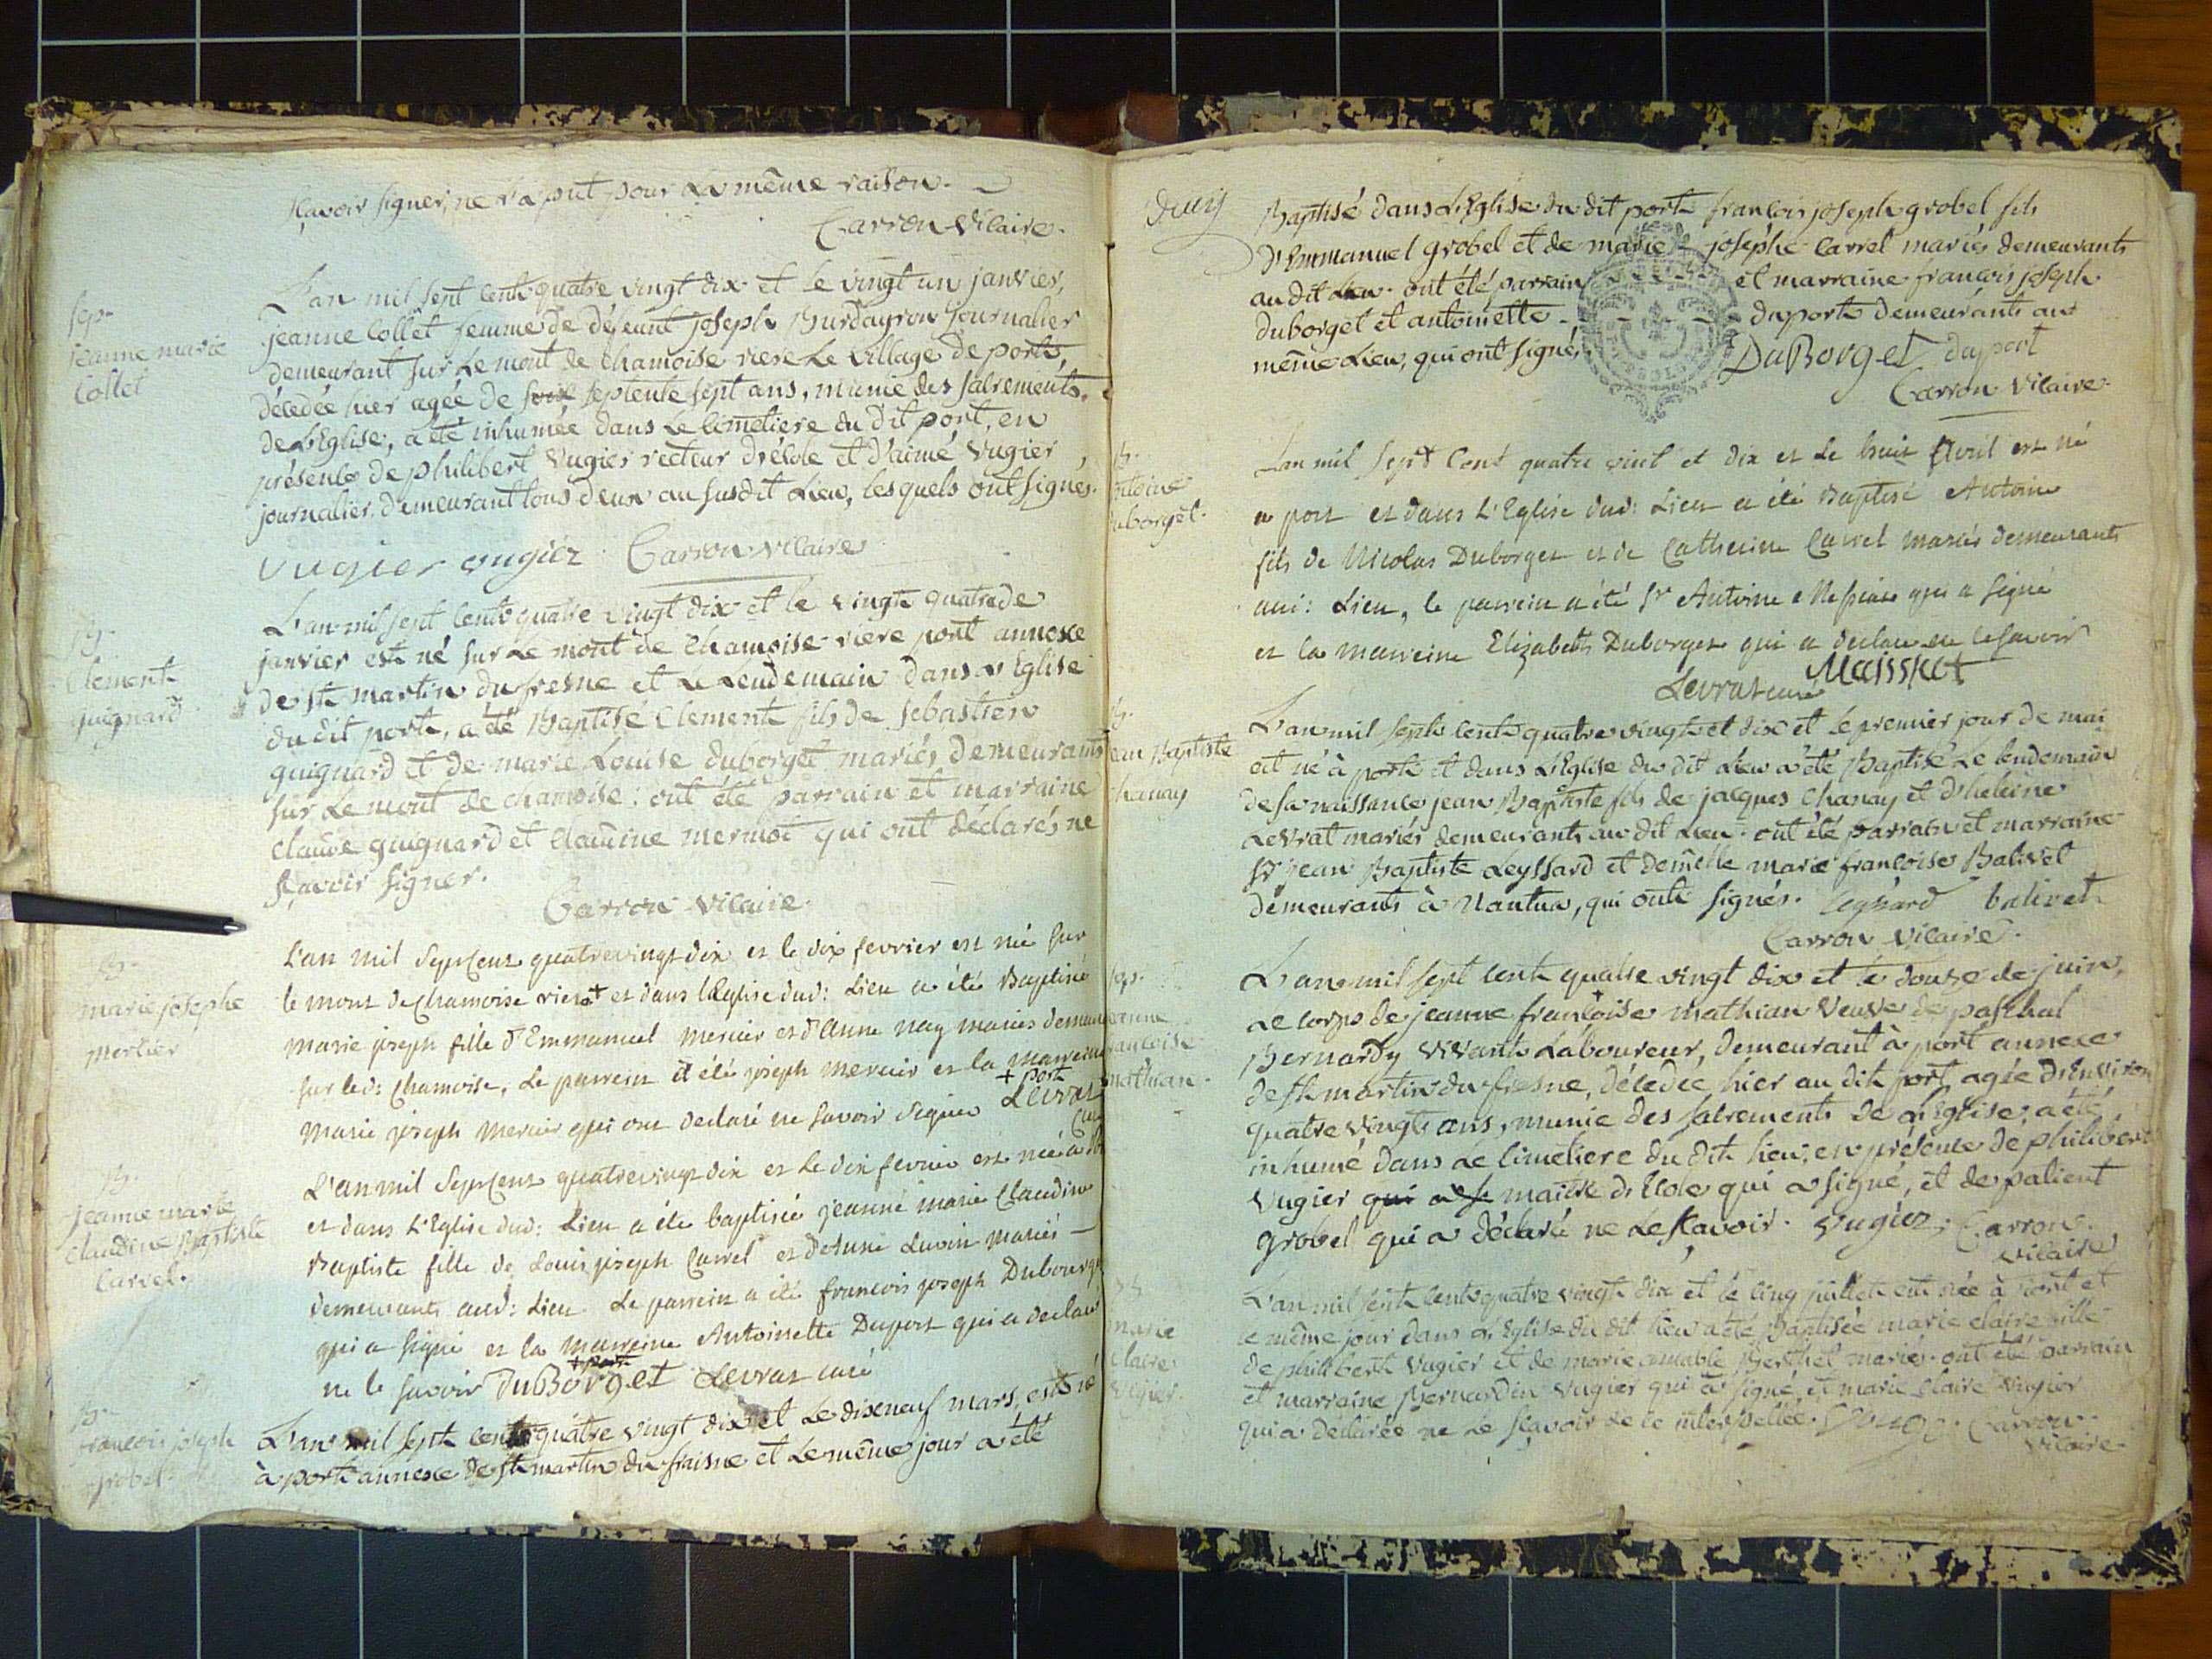 sçavoir signer, ne l'a put pour la même raison.
Carron vicaire.
sep.
jeanne marie
Collet
L'an mil sept cent quatre vingt dix et le vingt un janvier,
jeanne Collet femme de défeunt joseph Burdayron journalier
demeurant sur le mont de chamoise riere le village de port,
décedée hier agée de soix septente sept ans, munie des sacrements
de L'Eglise, a été inhumée dans le cimetiere du dit port, en
présence de philibert Vugier recteur d'école et d'aimé Vugier
journalier demeurant tous deux au susdit Lieu, lesquels ont signés.
vugier vugier Carron vicaire
b.
Clement
guignard
L'an mil sept cent quatre vingt dix et le vingt quatre de
janvier est né sur le mont de Chamoise riere port annexe
de st martin du fresne et le lendemain dans l'Eglise
du dit port, a été Baptisé Clement fils de sebastien
guignard et de marie Louise duborget mariés demeurants
sur le mont de chamoise: ont été parrain et marraine
claude guignard et claudine mermot qui ont déclarés ne
sçavoir signer.
Carron vicaire
b.
marie josephe
mercier
L'an mil sept cent quatrevingt dix et le dix fevrier est née sur
le mont de chamoise riere + et dans l'Eglise dud: Lieu a été Baptisée
marie joseph fille d'Emmanuel mercier et d'Anne nay mariés demeu
sur led: chamoise, Le parrein a été joseph mercier et la marreine
marie joseph mercier qui ont declaré ne savoir signer + port Levrat
curé
b.
jeanne marie
claudine Baptiste
Carrel.
L'an mil sept cent quatrevingt dix et le dix fevrier est née a
et dans L'Eglise dud: Lieu a été baptisée jeanne marie Claudine
Baptiste fille de Louis joseph Carrel et de mariés
demeurants aud: Lieu Le parrein a été francois joseph Dubourget
qui a signé et la marreine Antoinette Duport qui a declaré
ne le savoir DuBorget Levrat curé
b.
francois joseph
grobel.
L'an mil sept cent quatre vingt dix et le dixneuf mars, est né
à port annexe de st martin du fraisne et le même jour a été
Baptisé dans L'Eglise du dit port francois joseph grobel fils
d'Emmanuel grobel et de marie josephe Carrel mariés demeurants
au dit Lieu. ont été parrain et marraine francois joseph
duborget et antoinette duport demeurants au
même Lieu, qui ont signé, DuBorget duport
Carron vicaire.
b.
antoine
duborget.
L'an mil sept cent quatre vint et dix et le huit Avril est né
a port et dans L'Eglise dud: Lieu a été Baptisé Antoine
fils de Nicolas Duborget et de Catherine Carrel mariés demeurants
aud: Lieu, le parrein a été sr Antoine qui a signé
et la marreine Elizabeth Duborget qui a declaré ne le savoir
Levrat curé Maissiat
b.
jean Baptiste
chanay
L'an mil sept cent quatre vingt et dix et le premier jour de mai
est né à port et dans L'Eglise du dit Lieu a été Baptisé le lendemain
de sa naissance jean Baptiste fils de jacques Chanay et d'heleine
Levrat mariés demeurants au dit Lieu. ont été parrain et marraine
sr jean Baptiste Leyssard et demelle marie francoise Balivet
demeurants à Nantua, qui ont signés. leyssard balivet
Carron vicaire.
sep.
jeanne
francoise
mathian.
L'an mil sept cent quatre vingt dix et le douze de juin,
Le corps de jeanne francoise mathian veuve de paschal
Bernardy vivant Laboureur, demeurant à port annexe
de st martin du fresne, décedée hier au dit port agée d'environ
quatre vingts ans, munie des sacrements de L'Eglise, a été
inhumé dans le cimetiere du dit lieu, en présence de philibert
Vugier qui a se maitre d'Ecole qui a signé, et de patient
grobel qui a déclaré ne le sçavoir. Vugier. Carron
vicaire
b.
marie
claire
vugier.
L'an mil sept cent quatre vingt dix et le cinq juillet est née à port et
le même jour dans L'Eglise du dit lieu a été Baptisée marie claire fille
de philibert Vugier et de marie amable Berthet mariés. ont été parrain
et marraine Bernardin Vugier qui a signé, et marie claire vugier
qui a déclarée ne le sçavoir de ce interpellée. Carron
vicaire.